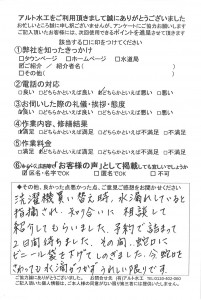 アルト水工をご利用頂きまして誠にありがとうございました
お忙しいところ誠に申し訳ございませんが、アンケートにご協力お願いします
ご記入頂いたお客様には、次回使用できるポイントを進呈させて頂きます
該当する□に印をつけてください
①弊社を知ったきっかけ
□タウンページ □ホームページ □水道局
□ご紹介／紹介者名( )
□その他( )
②電話の対応
□良い □どちらかといえば良い □どちらかといえば悪い □悪い
③お伺いした際の礼儀・挨拶・態度
□良い □どちらかといえば良い □どちらかといえば悪い □悪い
④作業内容、修繕結果
□満足 □どちらかといえば満足 □どちらかといえば不満足 □不満足
⑤作業料金
□満足 □どちらかといえば満足 □どちらかといえば不満足 □不満足
「お客様の声」として掲載しても宜しいでしょうか
□匿名でOK □不可
◆その他、良かった点悪かった点、ご意見ご感想をお聞かせください
洗濯機買い替え時、水漏れしていると
指摘され、知り合いに相談して
紹介してもらいました。予約で詰まって
2日間待ちました。その間、蛇口に
ビニール袋を下げてしのぎました。今、蛇口を
さわっても水滴がつかずうれしい限りです。
ご協力誠にありがとうございました。